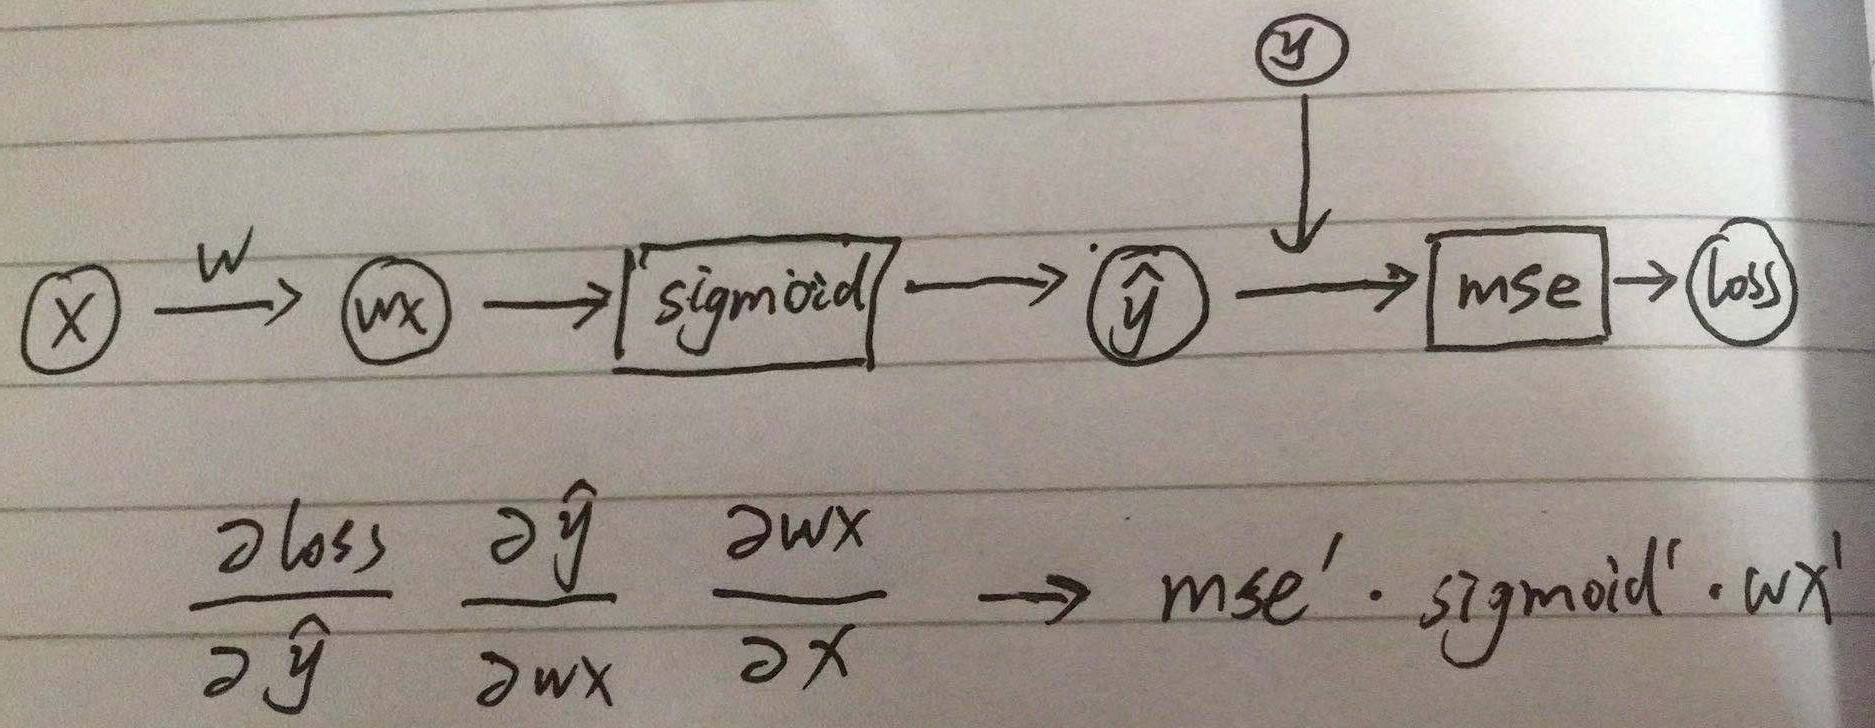 y
W
X → wx → sigmoid → ŷ → mse → loss
∂loss/∂ŷ ∂ŷ/∂wx ∂wx/∂x → mse' · sigmoid' · wx'